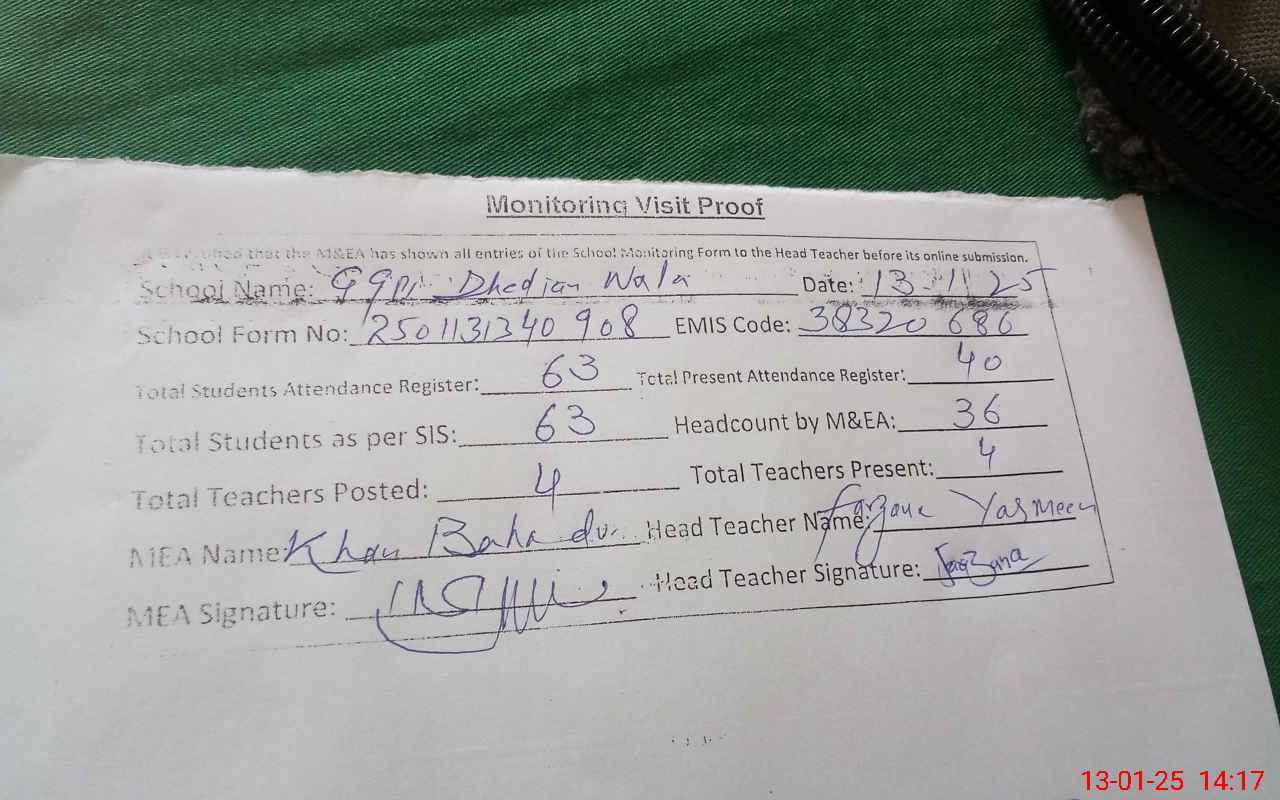 Monitoring Visit Proof
It is certified that the M&EA has shown all entries of the School Monitoring Form to the Head Teacher before its online submission.
School Name: Dhedian Wala Date: 13 1 25
School Form No: 2501131340908 EMIS Code: 38320686
Total Students Attendance Register: 63 Total Present Attendance Register: 40
Total Students as per SIS: 63 Headcount by M&EA: 36
Total Teachers Posted: 4 Total Teachers Present: 4
MEA Name: Khan Bahadur Head Teacher Name: Farzana Yasmeen
MEA Signature: Head Teacher Signature: Farzana
13-01-25 14:17